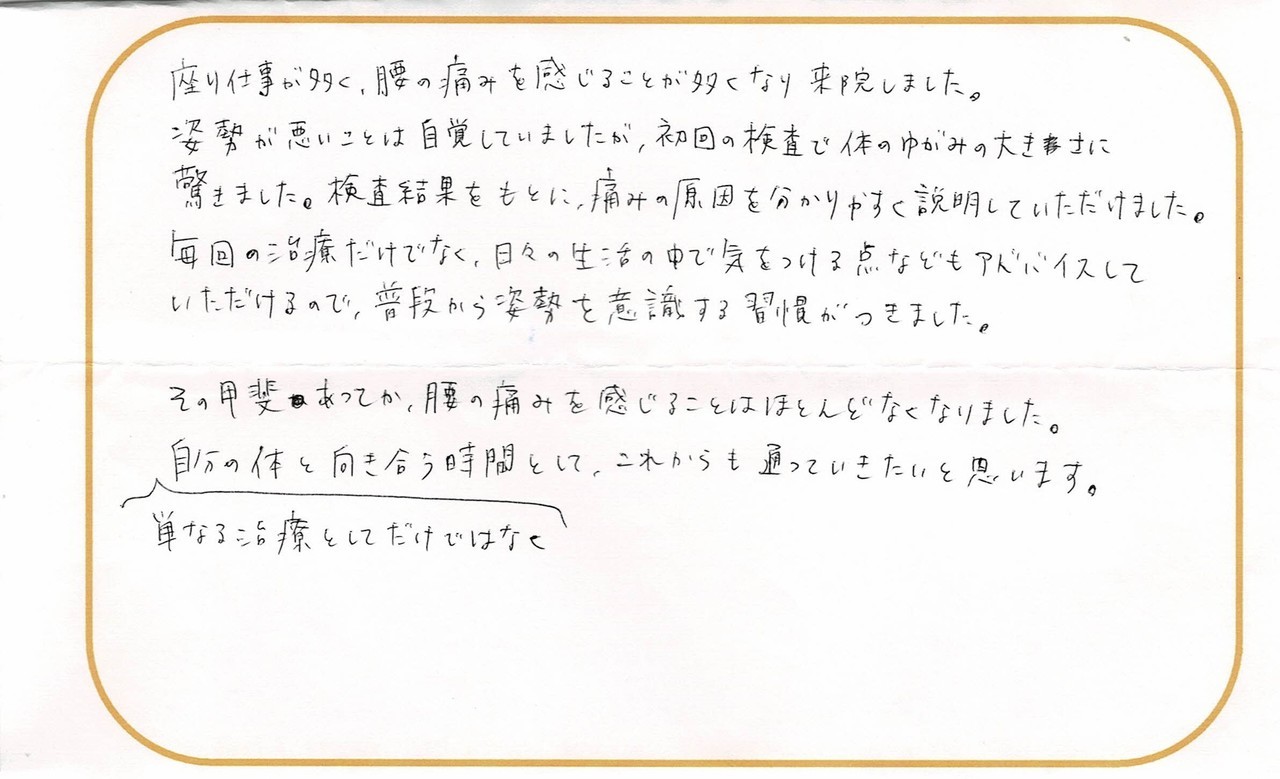 座り仕事が多く、腰の痛みを感じることが多くなり来院しました。
姿勢が悪いことは自覚していましたが、初回の検査で体のゆがみの大きさに
驚きました。検査結果をもとに、痛みの原因を分かりやすく説明していただけました。
毎回の治療だけでなく、日々の生活の中で気をつける点などもアドバイスして
いただけるので、普段から姿勢を意識する習慣がつきました。
その甲斐あってか、腰の痛みを感じることはほとんどなくなりました。
自分の体と向き合う時間として、これからも通っていきたいと思います。
単なる治療としてだけではなく